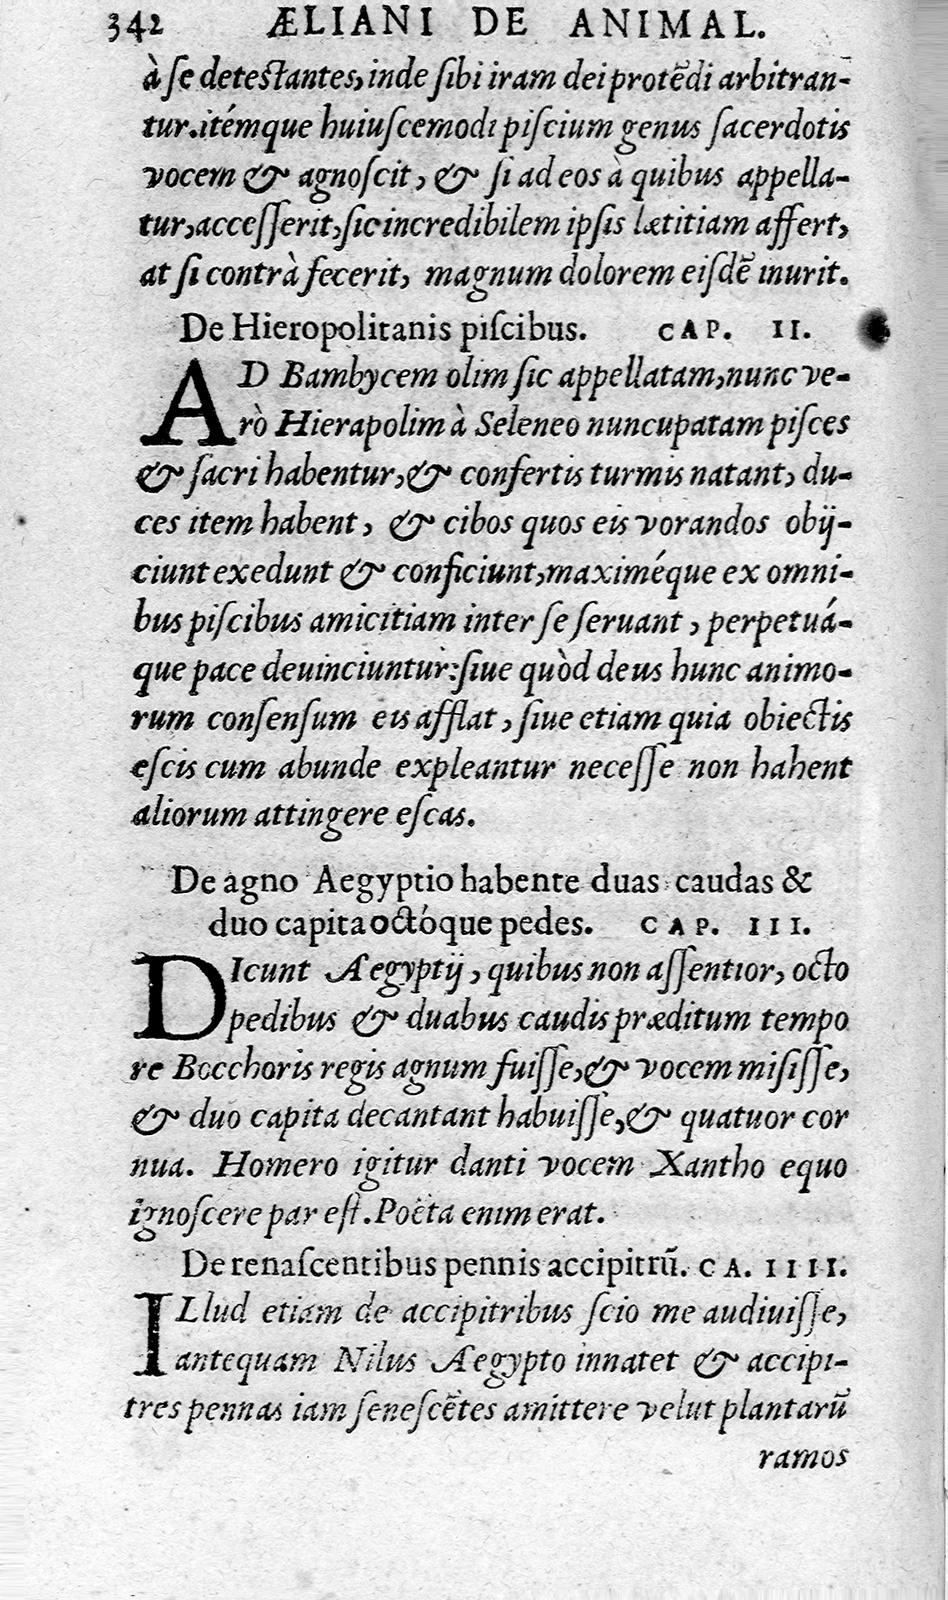 342 ÆLIANI DE ANIMAL.
à ſe deteſtantes, inde ſibi iram dei protẽdi arbitran-
tur. itémque huiuſcemodi piſcium genus ſacerdotis
vocem & agnoſcit, & ſi ad eos à quibus appella-
tur, acceſſerit, ſic incredibilem ipſis lætitiam affert,
at ſi contrà fecerit, magnum dolorem eiſdẽ inurit.
De Hieropolitanis piſcibus. CAP. II.
AD Bambycem olim ſic appellatam, nunc ve-
rò Hierapolim à Seleneo nuncupatam piſces
& ſacri habentur, & confertis turmis natant, du-
ces item habent, & cibos quos eis vorandos obij-
ciunt exedunt & conficiunt, maximéque ex omni-
bus piſcibus amicitiam inter ſe ſeruant, perpetuá-
que pace deuinciuntur: ſiue quòd deus hunc animo-
rum conſenſum eis afflat, ſiue etiam quia obiectis
eſcis cum abunde expleantur neceſſe non habent
aliorum attingere eſcas.
De agno Aegyptio habente duas caudas &
duo capita octóque pedes. CAP. III.
DIcunt Aegyptij, quibus non aſſentior, octo
pedibus & duabus caudis præditum tempo
re Bocchoris regis agnum fuiſſe, & vocem miſiſſe,
& duo capita decantant habuiſſe, & quatuor cor
nua. Homero igitur danti vocem Xantho equo
ignoſcere par eſt. Poëta enim erat.
De renaſcentibus pennis accipitrũ. CA. IIII.
ILlud etiam de accipitribus ſcio me audiuiſſe,
antequam Nilus Aegypto innatet & accipi-
tres pennas iam ſeneſcẽtes amittere velut plantarũ
ramos